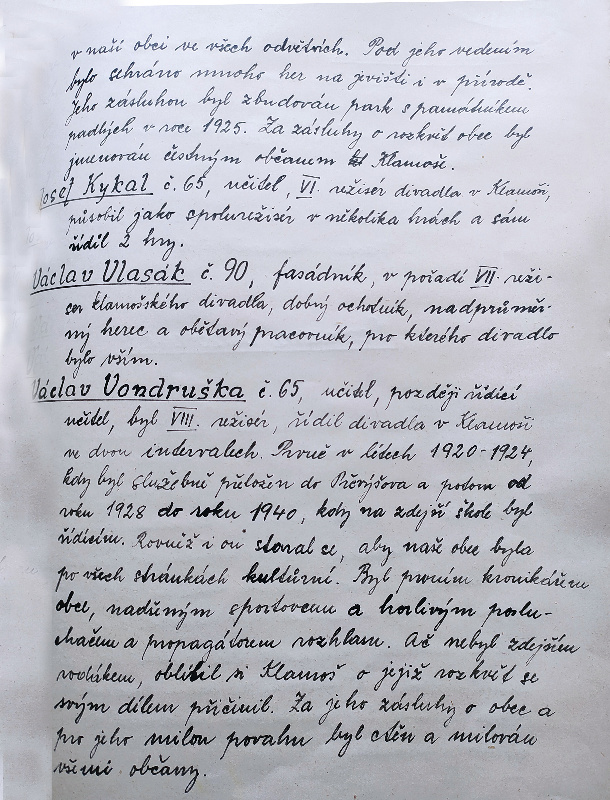 v naší obci ve všech odvětvích. Pod jeho vedením
bylo sehráno mnoho her na jevišti i v přírodě.
Jeho zásluhou byl zbudován park s památníkem
padlých v roce 1925. Za zásluhy o rozkvět obce byl
jmenován čestným občanem Klamoše.
Josef Kykal č. 65, učitel, VI. režisér divadla v Klamoši,
působil jako spolurežisér v několika hrách a sám
řídil 2 hry.
Václav Vlasák č. 90, fasádník, v pořadí VII. reži-
ser klamošského divadla, dobrý ochotník, nadprůměr-
ný herec a obětavý pracovník, pro kterého divadlo
bylo vším.
Václav Vondruška č. 65, učitel, později řídící
učitel, byl VIII. režisér, řídil divadla v Klamoši
ve dvou intervalech. Prvně v létech 1920-1924,
kdy byl služebně přeložen do Převýšova a potom od
roku 1928 do roku 1940, kdy na zdejší škole byl
řídícím. Rovněž i on staral se, aby naše obec byla
po všech stránkách kultůrní. Byl prvním kronikářem
obce, nadšeným sportovcem a horlivým poslu-
chačem a propagátorem rozhlasu. Ač nebyl zdejším
rodákem, oblíbil si Klamoš o jejiž rozkvět se
svým dílem přičinil. Za jeho zásluhy o obec a
pro jeho milou povahu byl ctěn a milován
všemi občany.